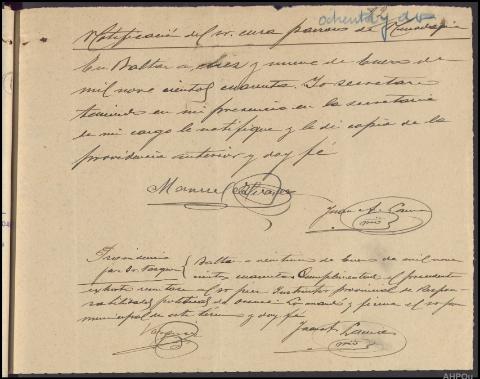 ochenta y dos
Notificación del sr. cura párroco de
En Baltar a diez y nueve de Enero de
mil nove cientos cuarenta. Yo secretario
teniendo en mi presencia en la secretaria
de mi cargo le notifique y le di copia de la
providencia anterior y doy fé
Manuel
Juan A.
Providencia
Juez Sr.
Baltar a veintiuno de Enero de mil nove
cientos cuarenta. Cumplimentado el precedente
exhorto al sr juez Instructor provincial de Respon
sabilidades politicas de y firma el sr juez
municipal de este termino y doy fé
AHPOu